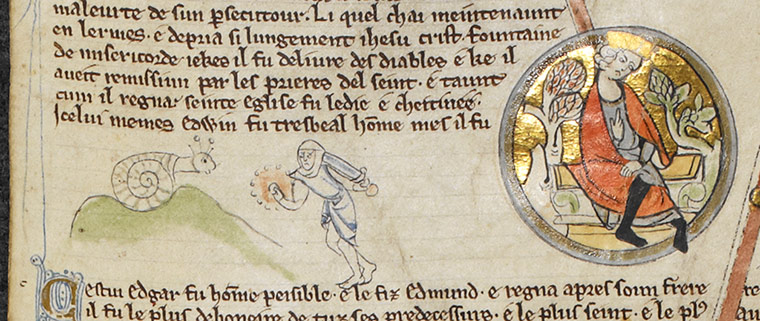 maleurte de sun persecutour. Li quel chai meintenaunt
en lermes. e depria si lungement ihesu crist fountaine
de misericorde iekes il fu deliure des diables. e ke il
aueit remissiun par les prieres del seint. e taunt
cum il regna seinte eglise fu ledie e chettiuee.
Icelui memes edwin fu tresbeal home mes il fu
Cestui edgar fu home peisible. e le fiz edmund. e regna apres soun frere
il fu le plus de honoire de tuz ses predecessurs. e le plus seint. e le plus